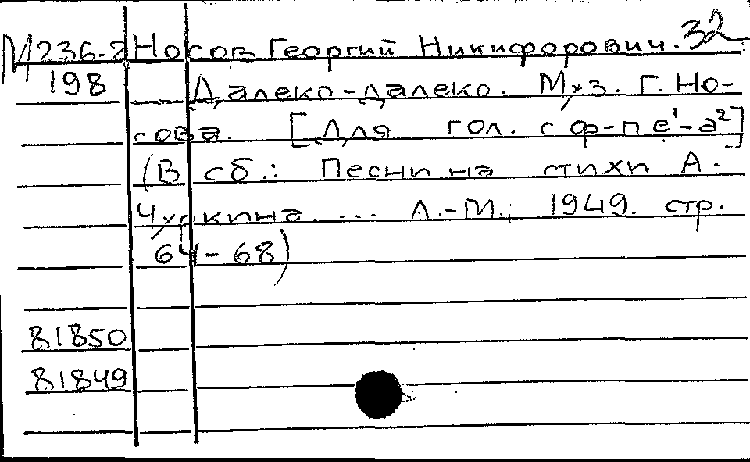 М236-2 Носов Георгий Никифорович. 32
198 Далеко-далеко. Муз. Г. Но-
сова. [Для гол. с ф-п e¹-a²]
(В сб.: Песни на стихи А.
Чуркина. ... Л.-М., 1949. стр.
64-68)
81850
81849